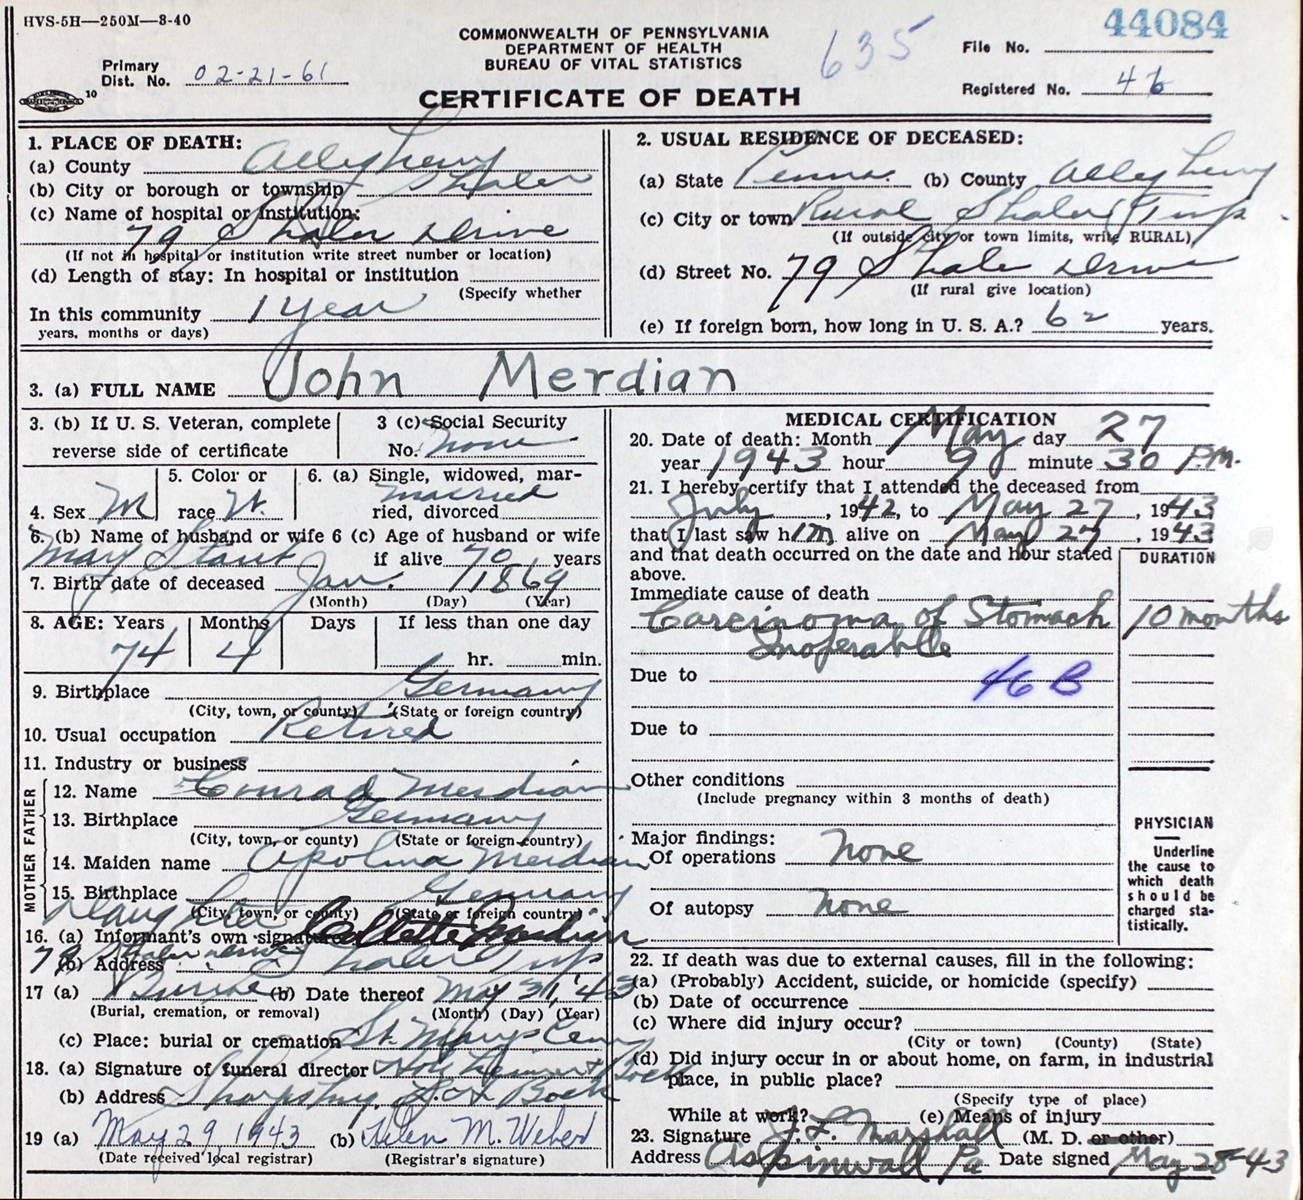 HVS-5H—250M—8-40
44084
COMMONWEALTH OF PENNSYLVANIA
DEPARTMENT OF HEALTH
BUREAU OF VITAL STATISTICS
635
File No.
Primary Dist. No. 02-21-61
Registered No. 46
10
CERTIFICATE OF DEATH
1. PLACE OF DEATH:
(a) County Allegheny
(b) City or borough or township Shaler
(c) Name of hospital or institution:
79 Shaler Drive
(If not in hospital or institution write street number or location)
(d) Length of stay: In hospital or institution
(Specify whether
In this community 1 year
years, months or days)
2. USUAL RESIDENCE OF DECEASED:
(a) State Penna. (b) County Allegheny
(c) City or town Rural Shaler Twp.
(If outside city or town limits, write RURAL)
(d) Street No. 79 Shaler Drive
(If rural give location)
(e) If foreign born, how long in U. S. A.? 62 years.
3. (a) FULL NAME John Merdian
3. (b) If U. S. Veteran, complete
reverse side of certificate
3 (c) Social Security
No. none
4. Sex M
5. Color or
race W.
6. (a) Single, widowed, mar-
married
ried, divorced
6. (b) Name of husband or wife 6 (c) Age of husband or wife
May if alive 70 years
7. Birth date of deceased Jan. 1 1869
(Month) (Day) (Year)
8. AGE: Years Months Days If less than one day
74 4 hr. min.
9. Birthplace Germany
(City, town, or county) (State or foreign country)
10. Usual occupation Retired
11. Industry or business
FATHER
12. Name Conrad Merdian
13. Birthplace Germany
(City, town, or county) (State or foreign country)
MOTHER
14. Maiden name Apolina Merdian
15. Birthplace Germany
(City, town, or county) (State or foreign country)
Daughter
16. (a) Informant's own signature Collette Merdian
(b) Address 79 Shaler Drive Shaler Twp
17 (a) Burial (b) Date thereof May 31, '43
(Burial, cremation, or removal) (Month) (Day) (Year)
(c) Place: burial or cremation St. Marys Cem
18. (a) Signature of funeral director
(b) Address Sharpsburg
19 (a) May 29 1943 (b) Helen M. Weber
(Date received local registrar) (Registrar's signature)
MEDICAL CERTIFICATION
20. Date of death: Month May day 27
year 1943 hour 9 minute 30 P.M.
21. I hereby certify that I attended the deceased from
July, 1942, to May 27, 1943
that I last saw him alive on May 27, 1943
and that death occurred on the date and hour stated
above.
DURATION
Immediate cause of death
Carcinoma of Stomach 10 months
Inoperable
Due to 46 B
Due to
Other conditions
(Include pregnancy within 3 months of death)
Major findings:
Of operations None
Of autopsy None
PHYSICIAN
Underline
the cause to
which death
should be
charged sta-
tistically.
22. If death was due to external causes, fill in the following:
(a) (Probably) Accident, suicide, or homicide (specify)
(b) Date of occurrence
(c) Where did injury occur?
(City or town) (County) (State)
(d) Did injury occur in or about home, on farm, in industrial
place, in public place?
(Specify type of place)
While at work? (e) Means of injury
23. Signature J. L. Marshall (M. D. or other)
Address Aspinwall Pa Date signed May 28-43